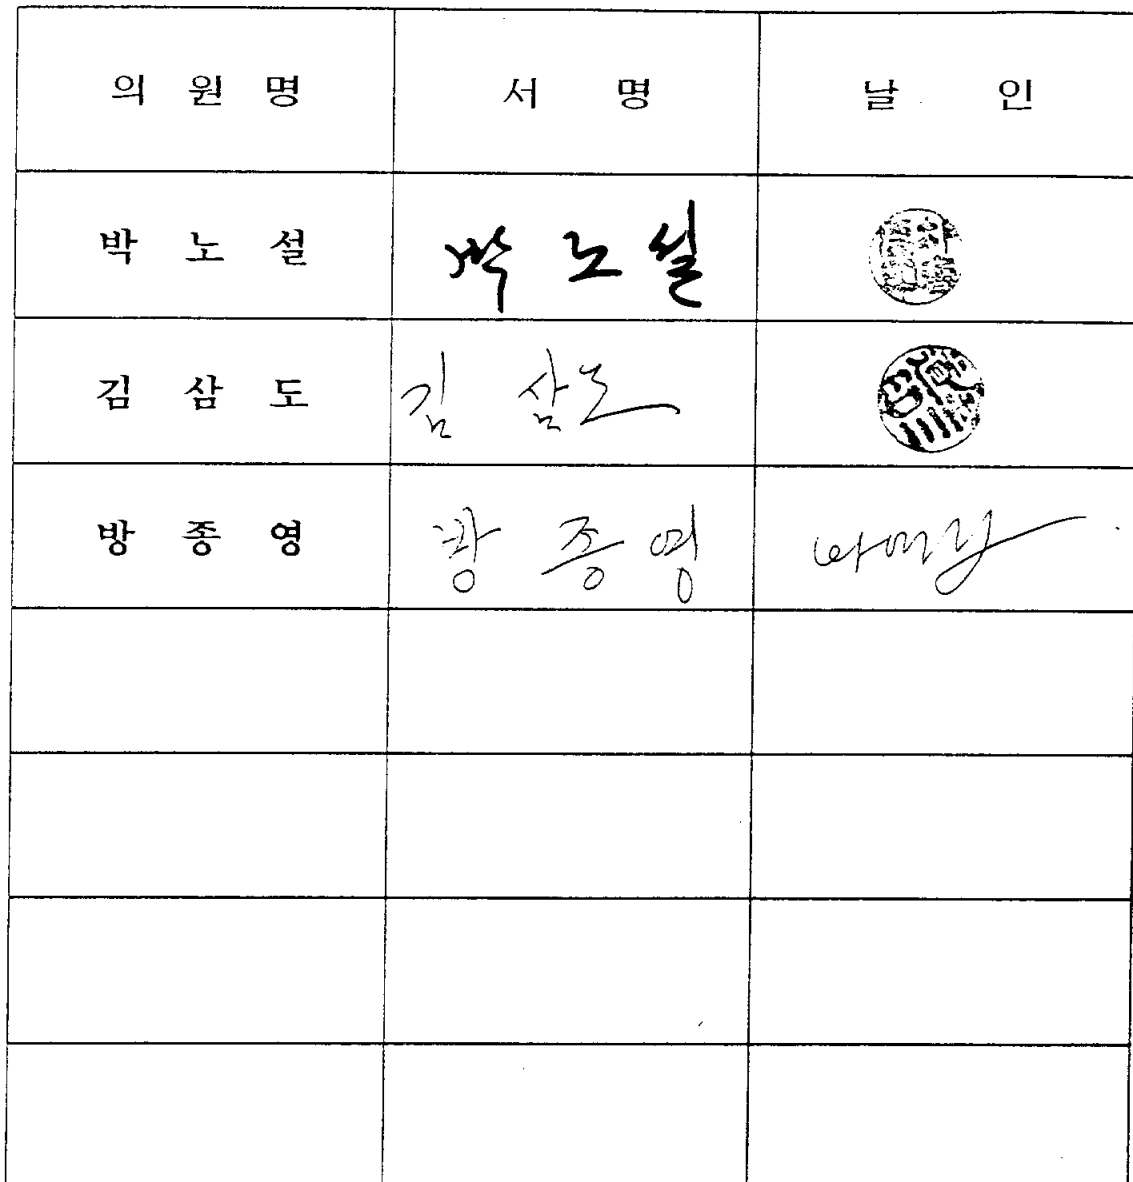 의 원 명 서 명 날 인
박 노 설 박 노 설
김 삼 도 김 삼도
방 종 영 방 종 영